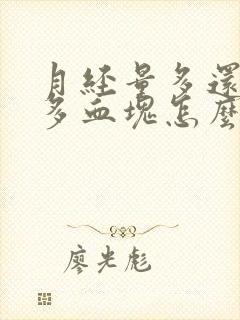 月経量多還
多血塊怎麼
廖光彪